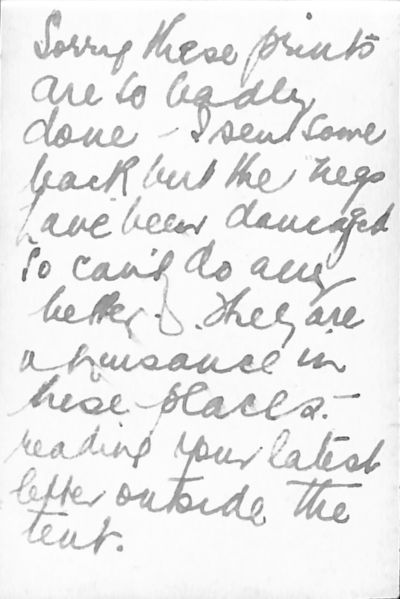 Sorry these prints
are so badly
done - I sent some
back but the negs
have been damaged
so can't do any
better. They are
a nuisance in
these places. -
reading your latest
letter outside the
tent.